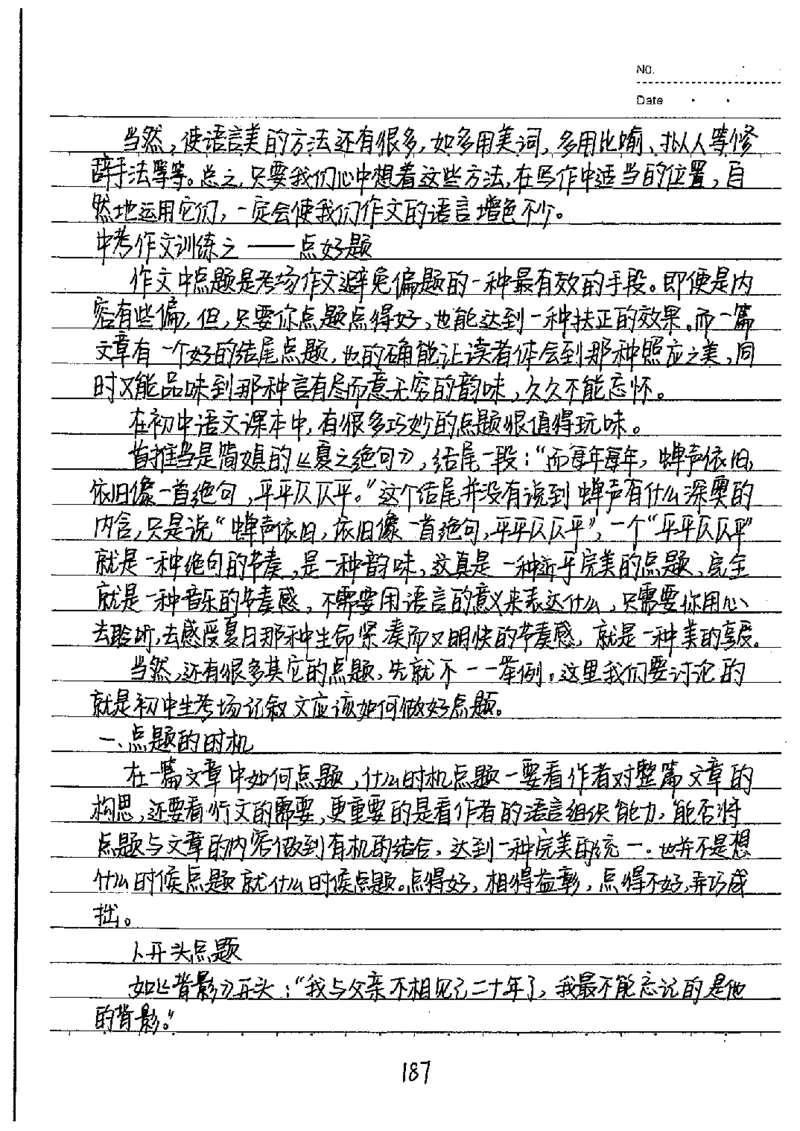 NO.
Date
当然，使语言美的方法还有很多，如多用美词，多用比喻、拟人等修
辞手法等等。总之，只要我们心中想着这些方法，在写作中适当的位置，自
然地运用它们，一定会使我们作文的语言增色不少。
中考作文训练之——点好题
作文中点题是考场作文避免偏题的一种最有效的手段。即便是内
容有些偏，但，只要你点题点得好，也能达到一种扶正的效果。而一篇
文章有一个好的结尾点题，也的确能让读者体会到那种照应之美，同
时又能品味到那种言有尽而意无穷的韵味，久久不能忘怀。
在初中语文课本中，有很多巧妙的点题很值得玩味。
首推当是简媜的《夏之绝句》，结尾一段：“而每年每年，蝉声依旧，
依旧像一首绝句，平平仄仄平。”这个结尾并没有说到蝉声有什么深奥的
内含，只是说“蝉声依旧，依旧像一首绝句，平平仄仄平”，一个“平平仄仄平”
就是一种绝句的节奏，是一种韵味，这真是一种近乎完美的点题、完全
就是一种音乐的节奏感，不需要用语言的意义来表达什么，只需要你用心
去聆听，去感受夏日那种生命紧凑而又明快的节奏感，就是一种美的享受。
当然，还有很多其它的点题，先就不一一举例。这里我们要讨论的
就是初中生考场记叙文应该如何做好点题。
一、点题的时机
在一篇文章中如何点题，什么时机点题一要看作者对整篇文章的
构思，还要看行文的需要，更重要的是看作者的语言组织能力，能否将
点题与文章的内容做到有机的结合，达到一种完美的统一。也并不是想
什么时候点题就什么时候点题。点得好，相得益彰，点得不好，弄巧成
拙。
1、开头点题
如《背影》开头：“我与父亲不相见已二十年了，我最不能忘记的是他
的背影。”
187